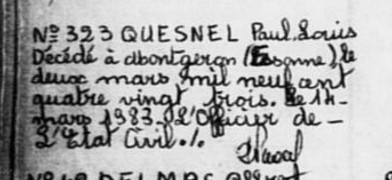 Nº 323 QUESNEL Paul Louis
Décédé à Montgeron (Essonne), le
deux mars mil neuf cent
quatre vingt trois. Le 14
mars 1983. L'Officier de
L'Etat Civil ./.